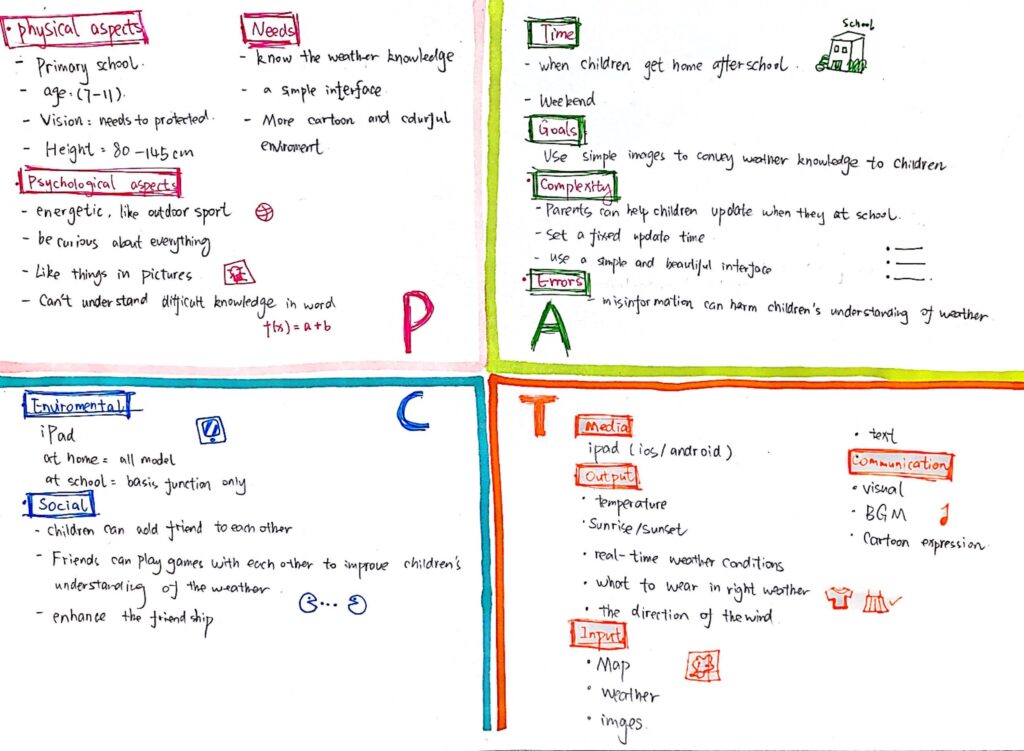 • physical aspects
- Primary school.
- age: (7-11).
- Vision: needs to protected.
- Height = 80 - 145 cm
• Psychological aspects
- energetic, like outdoor sport
- be curious about everything
- Like things in pictures
- Can't understand difficult knowledge in word
f(x) = a+b
Needs
- know the weather knowledge
- a simple interface
- More cartoon and colurful
enviroment
P
Time
School
- when children get home after school.
- Weekend
Goals
Use simple images to convey weather knowledge to children
• Complexity
- Parents can help children update when they at school.
- set a fixed update time
- use a simple and beautiful interface
• Errors
- misinformation can harm children's understanding of weather
A
Enviromental
iPad
at home = all model
at school = basis function only
• Social
- children can add friend to each other
- Friends can play games with each other to improve children's
understanding of the weather.
- enhance the friendship
C
T
Media
ipad (ios/android)
Output
• temperature
• Sunrise/sunset
• real-time weather conditions
• what to wear in right weather
• the direction of the wind.
Input
• Map
• weather
• imges.
• text
Communication
• visual
• BGM
• Cartoon expression.